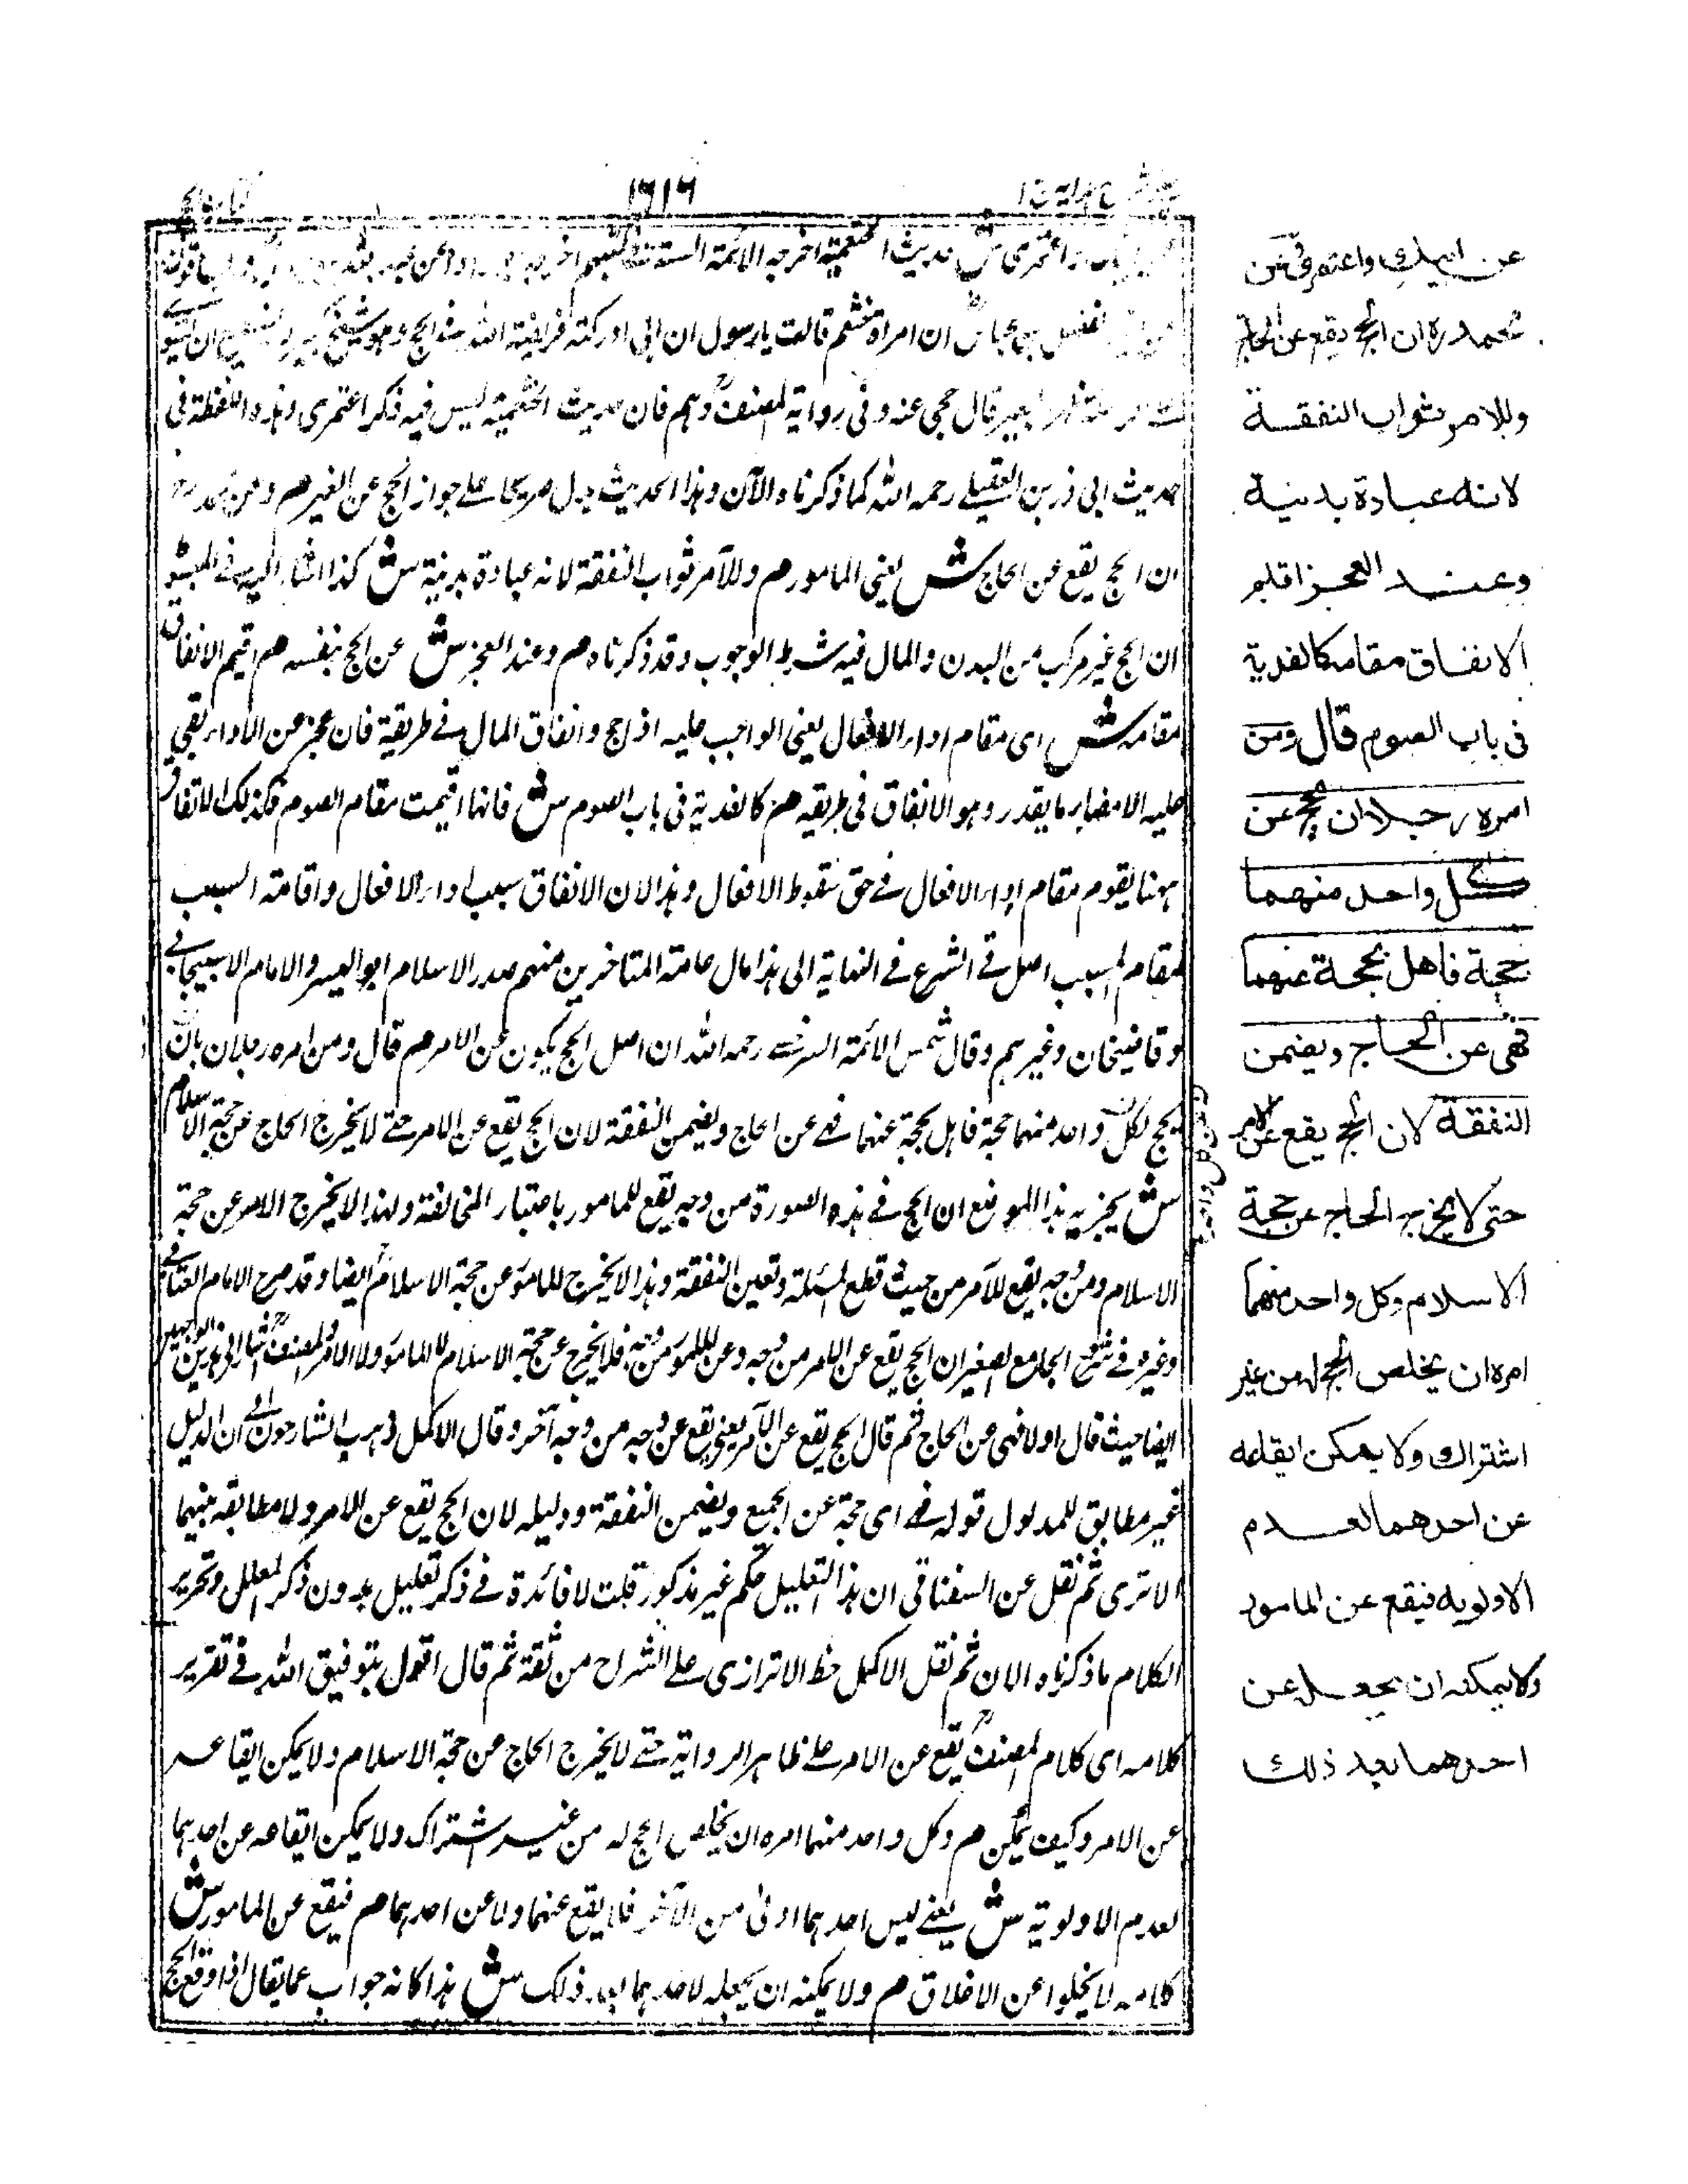 ١٦١٦
حديث الخثعمية اخرجه الائمة الستة
ان امراة من خثعم قالت يا رسول ان ابى ادركته فريضة الله فى الحج وهو شيخ كبير
قال حجى عنه وفى رواية المصنف وهم فان حديث الخثعمية ليس فيه ذكر اعتمرى وهذه اللفظة فى
حديث ابى رزين العقيلے رحمه الله كما ذكرناه الآن وهذا الحديث يدل صريحا علے جواز الحج عن الغير م وعن محمد رح
ان الحج يقع عن الحاج ش يعنى المامور م وللآمر ثواب النفقة لانه عبادة بدنية ش كذا اشار اليه فے المبسوط
ان الحج غير مركب من البدن والمال فيه شرط الوجوب وقد ذكرناه م وعند العجز ش عن الحج بنفسه م اقيم الانفاق
مقامه ش اى مقام اداء الافعال يعنى الواجب عليه اذ الحج وانفاق المال فے طريقه فان عجز عن الاداء بقى
عليه الامضاء ما يقدر وهو الانفاق فى طريقه م كالفدية فى باب الصوم ش فانها اقيمت مقام الصوم فكذلك الانفاق
ههنا يقوم مقام اداء الافعال فے حق سقوط الافعال وهذا لان الانفاق سبب لاداء الافعال واقامة السبب
مقام المسبب اصل فے الشرع فے النهاية الى هذا مال عامة المتاخرين منهم صدر الاسلام ابو اليسر والامام الاسبيجابے
وقاضيخان وغيرهم وقال شمس الائمة السرخسے رحمه الله ان اصل الحج يكون عن الامر م قال ومن امره رجلان بان
يحج لكل واحد منهما حجة فاهل بحجة عنهما فهے عن الحاج ويضمن النفقة لان الحج يقع عن الامر حتے لا يخرج الحاج عن حجة الاسلام
ش يخبر به هذا الموضع ان الحج فے هذه الصورة من وجه يقع للمامور باعتبار المخالفة ولهذا لا يخرج الامر عن حجة
الاسلام ومن وجه يقع للآمر من حيث قطع المسئلة وتعين النفقة وهذا لا يخرج للمامور عن حجة الاسلام ايضا وقد صرح الامام العتابے
وغيره فے شرح الجامع الصغير ان الحج يقع عن الامر من وجه وعن المامور من وجه فلا يخرج عن حجة الاسلام لا المامور ولا الامر والمصنف رح اشار الى هذين الوجهين
ايضا حيث قال اولا فهى عن الحاج ثم قال الحج يقع عن الآمر يعنى يقع عن وجه من وجه آخر وقال الاكمل ذهب الشارحون الى ان الدليل
غير مطابق للمدلول قوله فهے اى حجة عن الجميع ويضمن النفقة ودليله لان الحج يقع عن الامر ولا مطابقة بينهما
الا ترى ثم نقل عن السغناقى ان هذا التعليل حكم غير مذكور قلت لا فائدة فے ذكر تعليل بدون ذكر المعلل وتحرير
الكلام ما ذكرناه الان ثم نقل الاكمل حط الاترازى علے الشراح من ثقة ثم قال اقول بتوفيق الله فے تقرير
كلامه اى كلام المصنف رح يقع عن الامر علے ظاهر الرواية حتے لا يخرج الحاج عن حجة الاسلام ولا يمكن ايقاعه
عن الامر وكيف يمكن م وكل واحد منهما امره ان يخلص الحج له من غير اشتراك ولا يمكن ايقاعه عن احدهما
لعدم الاولوية ش يعنے ليس احدهما اولى من الآخر فلا يقع عنهما ولا عن احدهما م فيقع عن المامور ش
كلامه لا يخلوا عن الاغلاق م ولا يمكنه ان يجعله لاحدهما بعد ذلك ش هذا كانه جواب عما يقال اذا وقع الحج
عن ابيك واعتمرى عن
محمد ره ان الحج يقع عن الحاج
وللامر ثواب النفقة
لانه عبادة بدنية
وعند العجز اقيم
الانفاق مقامه كالفدية
فى باب الصوم قال ومن
امره رجلان ان يحج عن
كل واحد منهما
حجة فاهل بحجة عنهما
فهى عن الحاج ويضمن
النفقة لان الحج يقع عن الامر
حتى لا يخرج الحاج عن حجة
الاسلام وكل واحد منهما
امره ان يخلص الحج له من غير
اشتراك ولا يمكن ايقاعه
عن احدهما لعدم
الاولويه فيقع عن المامور
ولا يمكنه ان يجعل عن
احدهما بعد ذلك